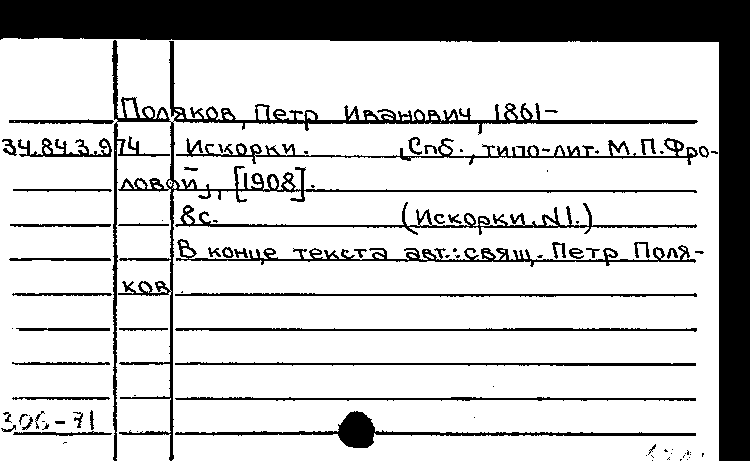 Поляков, Петр Иванович, 1861-
34.84.3.974 Искорки. [Спб., типо-лит. М.П.Фро-
ловой], [1908].
8с. (Искорки. N1.)
В конце текста авт.: свящ. Петр Поля-
ков
306-71